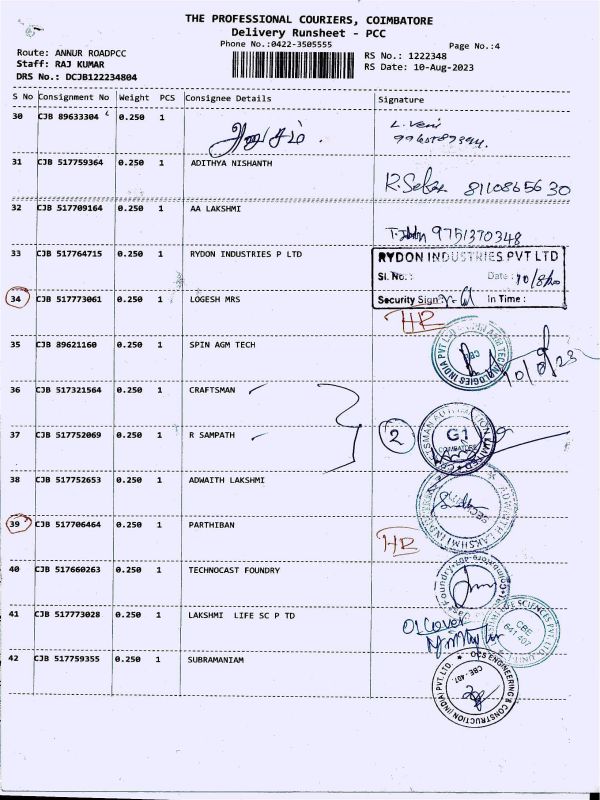 THE PROFESSIONAL COURIERS, COIMBATORE
Delivery Runsheet - PCC
Phone No.:0422-3505555
Page No.:4
Route: ANNUR ROADPCC
Staff: RAJ KUMAR
DRS No.: DCJB122234804
RS No.: 1222348
RS Date: 10-Aug-2023
S No Consignment No Weight PCS Consignee Details Signature
30 CJB 89633304 0.250 1
31 CJB 517759364 0.250 1 ADITHYA NISHANTH
8110865630
32 CJB 517709164 0.250 1 AA LAKSHMI
9751370348
33 CJB 517764715 0.250 1 RYDON INDUSTRIES P LTD
RYDON INDUSTRIES PVT LTD
Sl. No. :
Date :
Security Sign
In Time :
34 CJB 517773061 0.250 1 LOGESH MRS
HR
35 CJB 89621160 0.250 1 SPIN AGM TECH
10/8/23
36 CJB 517321564 0.250 1 CRAFTSMAN
37 CJB 517752069 0.250 1 R SAMPATH
2
G1
38 CJB 517752653 0.250 1 ADWAITH LAKSHMI
39 CJB 517706464 0.250 1 PARTHIBAN
HR
40 CJB 517660263 0.250 1 TECHNOCAST FOUNDRY
41 CJB 517773028 0.250 1 LAKSHMI LIFE SC P TD
CBE
641 407
42 CJB 517759355 0.250 1 SUBRAMANIAM
OCS ENGINEERING & CONSTRUCTION (INDIA) PVT. LTD.
CBE-407.